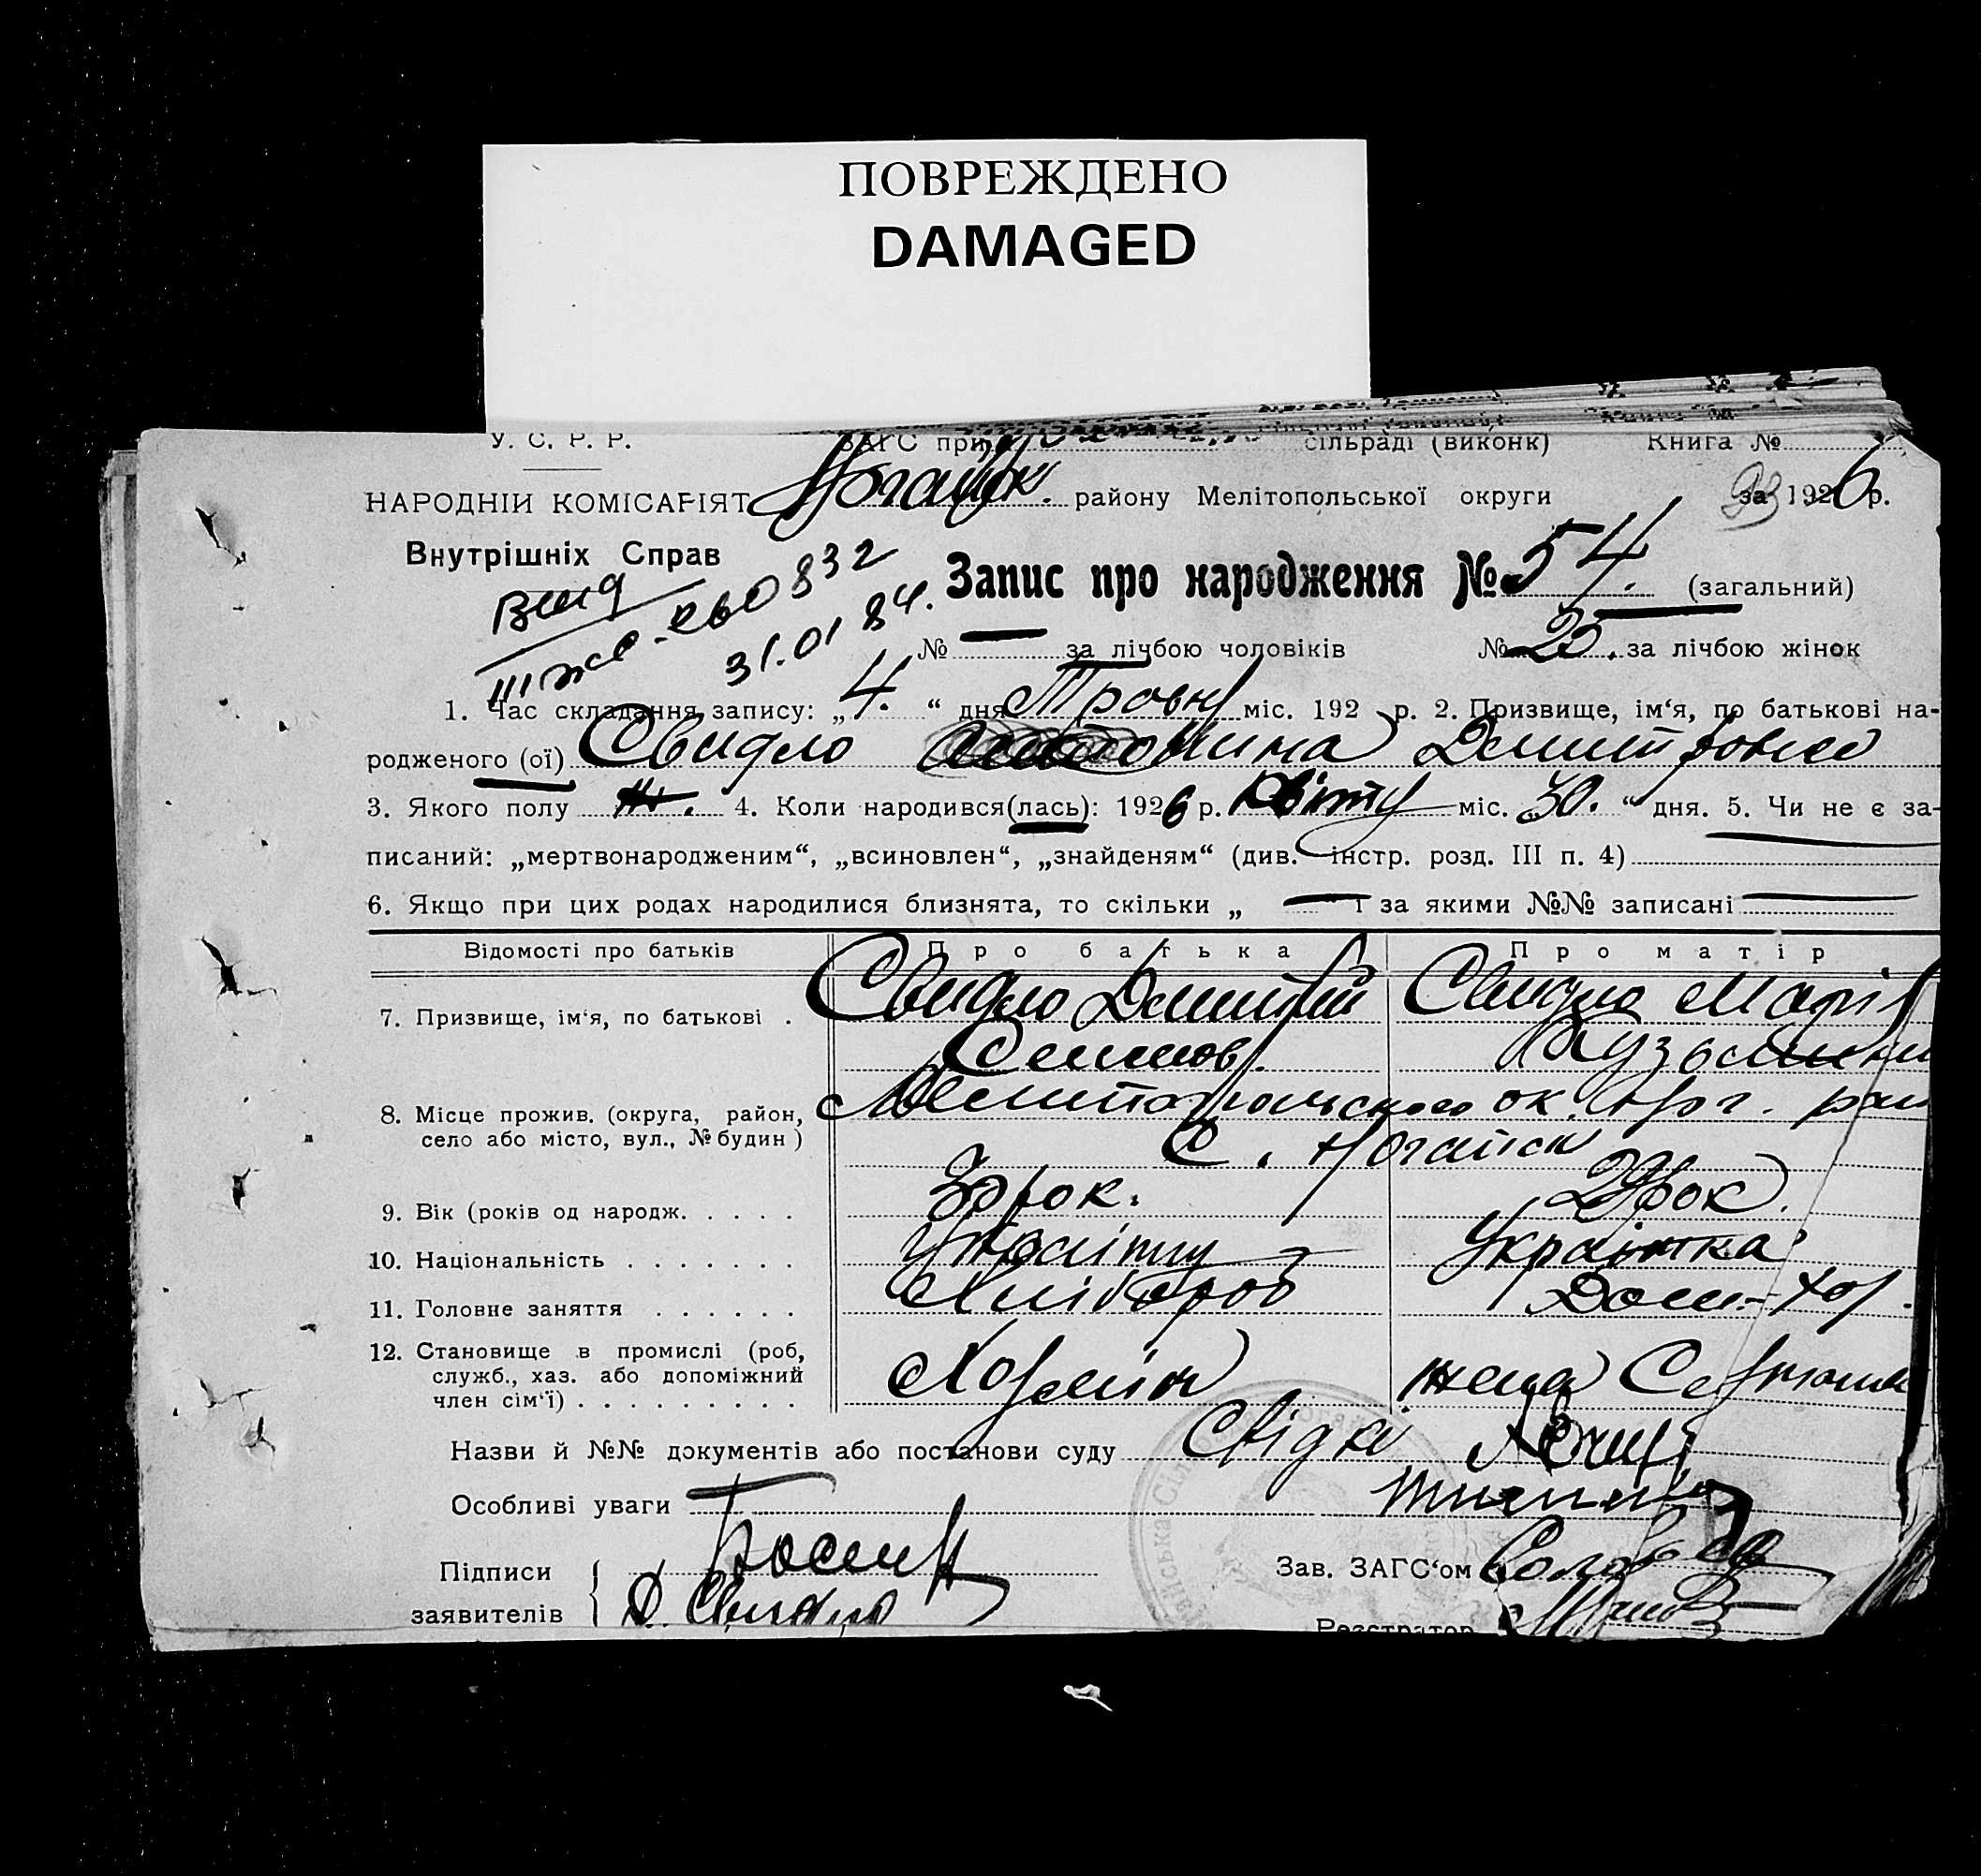 ПОВРЕЖДЕНО
DAMAGED
У. С. Р. Р. ЗАГС при сільраді (виконк) Книга №
НАРОДНІЙ КОМІСАРІЯТ Ногайськ. району Мелітопольської округи за 1926 р.
93
Внутрішніх Справ
Запис про народження № 54. (загальний)
Вид
III жс 260832
31.01 84.
№ — за лічбою чоловіків № 25. за лічбою жінок
1. Час складання запису: „4.“ дня Травн міс. 192 р. 2. Призвище, ім‘я, по батькові на-
родженого (ої) Свидло Нина Дмитровна
3. Якого полу ж. 4. Коли народився(лась): 1926 р. Квітн міс. „30.“ дня. 5. Чи не є за-
писаний: „мертвонародженим“, „всиновлен“, „знайденям“ (див. інстр. розд. III п. 4)
6. Якщо при цих родах народилися близнята, то скільки „ — “ і за якими №№ записані —
Відомості про батьків Про батька Про матір
7. Призвище, ім‘я, по батькові . Свидло Дмитрій Свидло Марія
Семенов. Кузьмини
8. Місце прожив. (округа, район, Мелитопольского ок. Ног. рай
село або місто, вул., № будин) С. Ногайск
9. Вік (років од народж. . . . . рок. 29 рок.
10. Національність . . . . . . . Українка
11. Головне заняття . . . . . . Хлібороб Дом. хоз.
12. Становище в промислі (роб, Хозяїн жена
служб., хаз. або допоміжний
член сім‘ї) . . . . . . . . .
Назви й №№ документів або постанови суду Свідки
Особливі уваги —
Підписи Зав. ЗАГС‘ом
заявителів Д. Свидло
Реєстратор